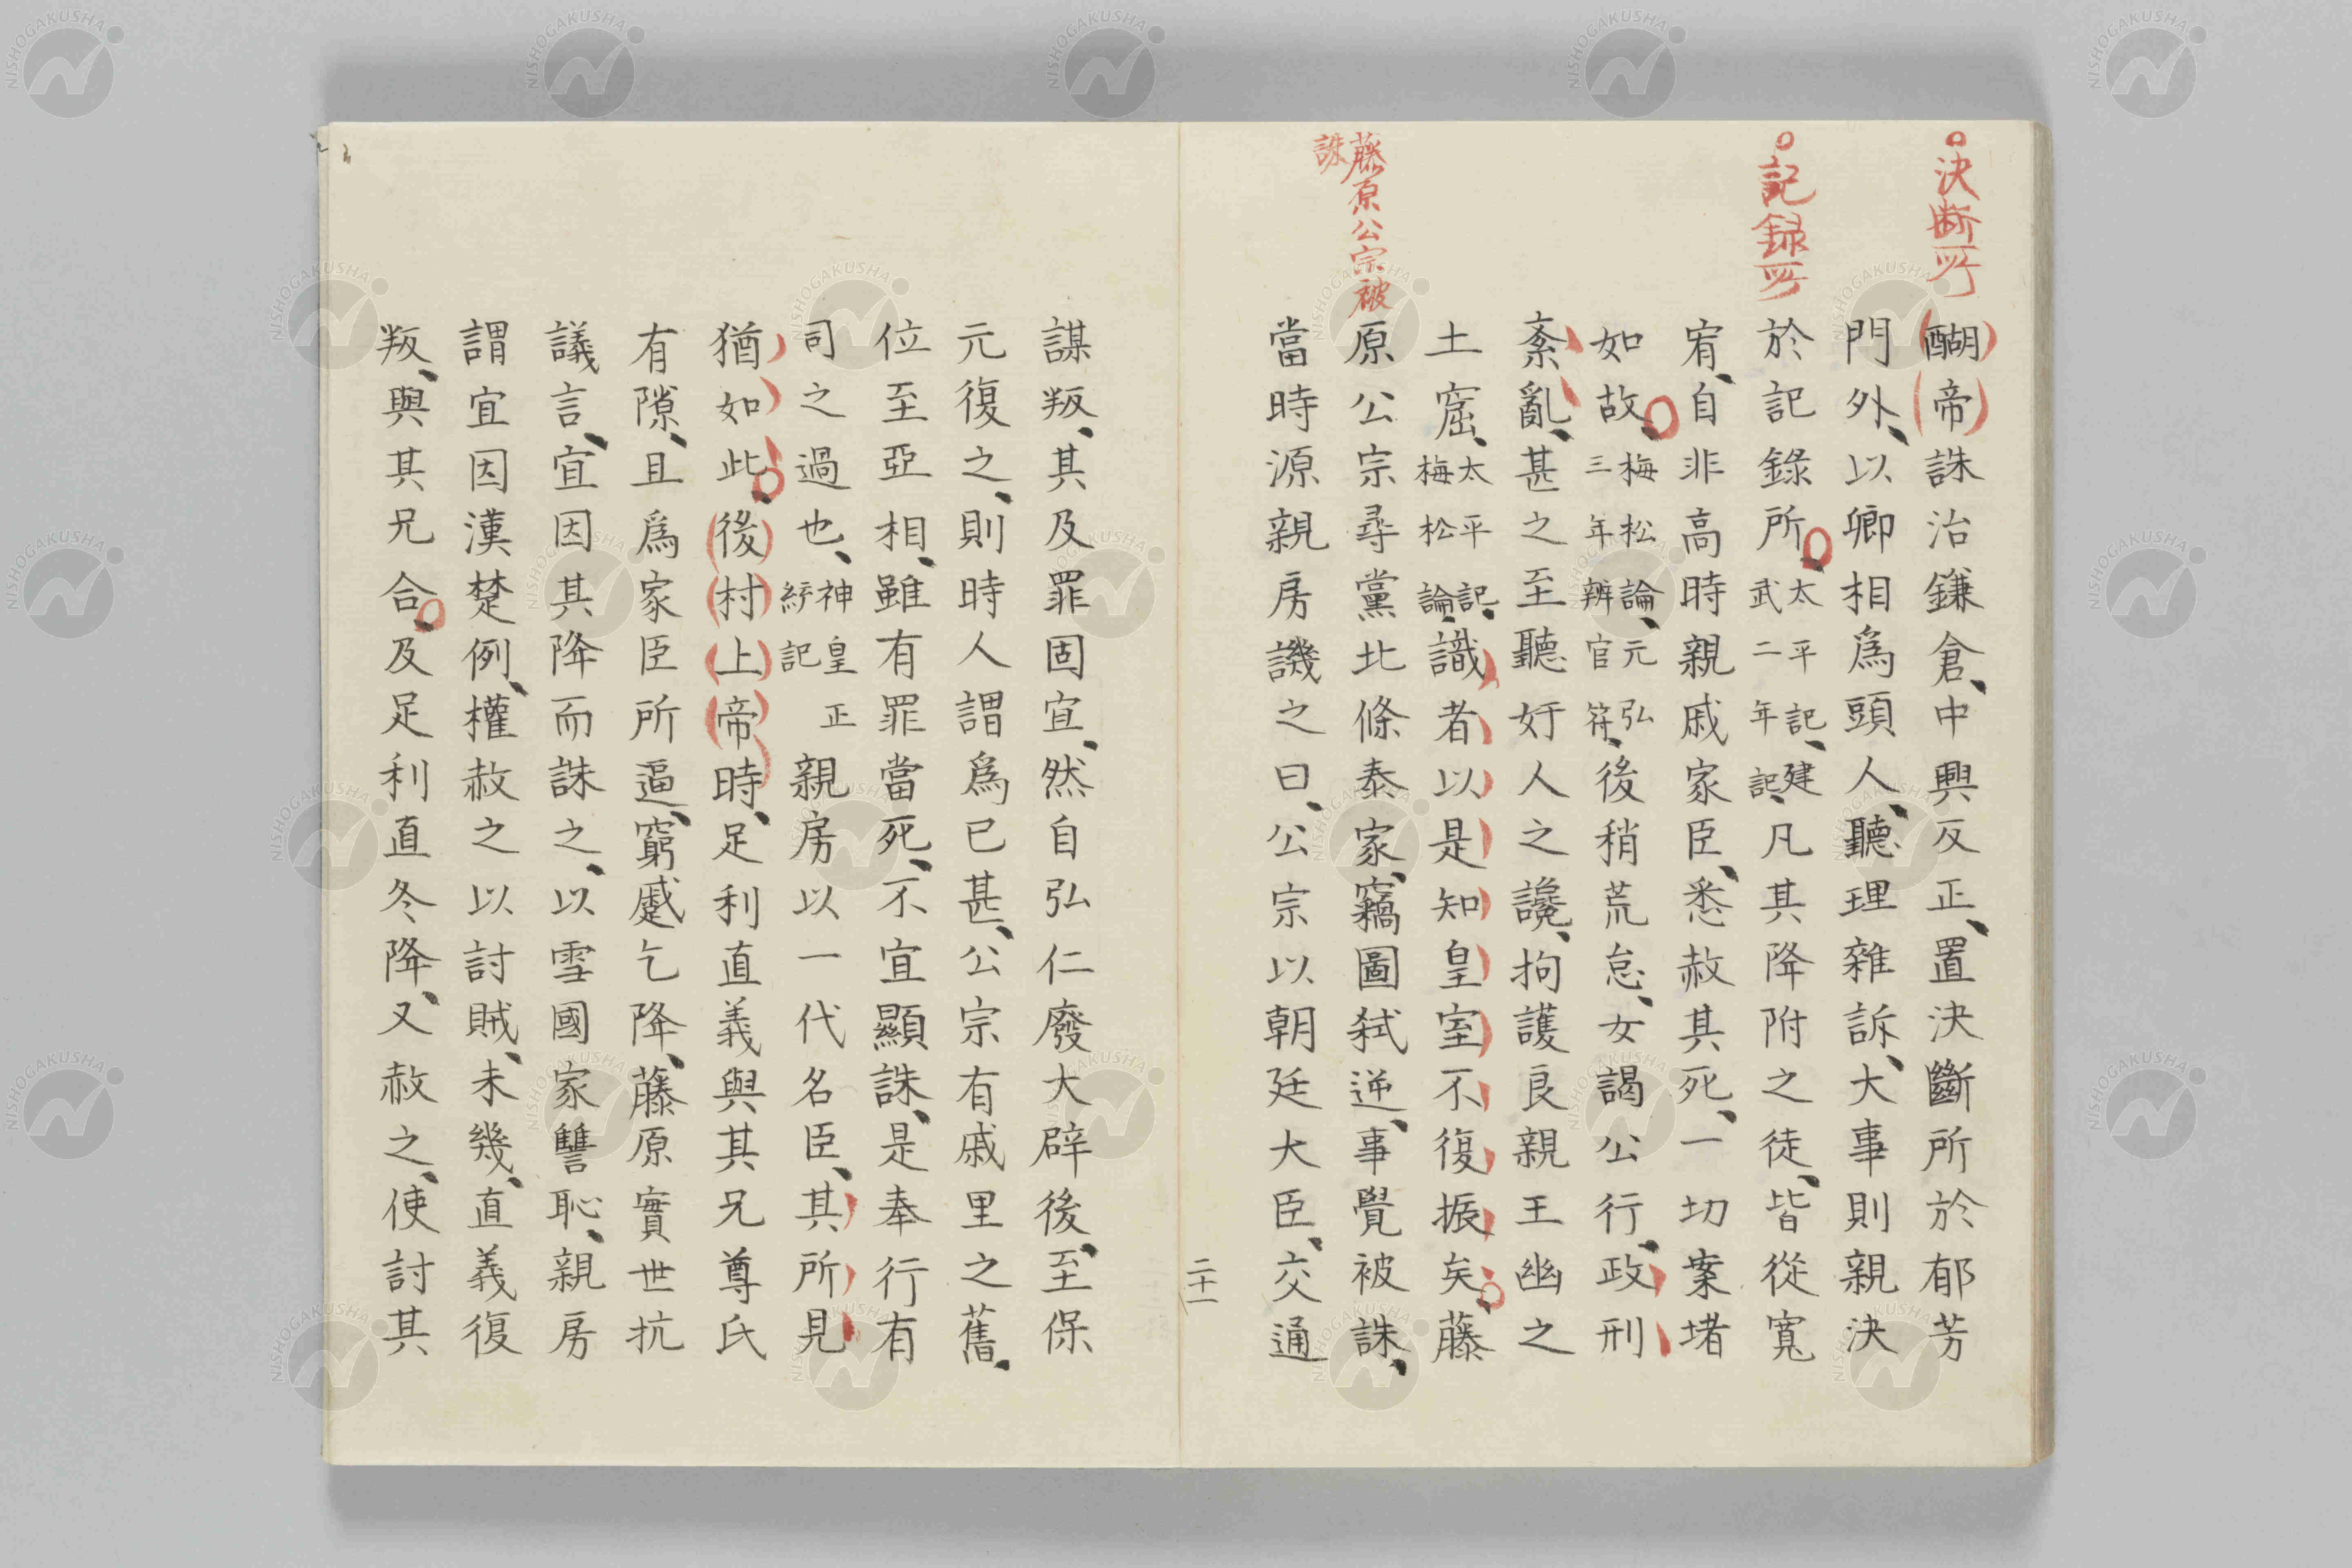 ○決断所
○記録所
藤原公宗被
誅
醐帝誅治鎌倉、中興反正、置決斷所於郁芳
門外、以卿相爲頭人、聽理雜訴、大事則親決
於記錄所、太平記、建武二年記、凡其降附之徒、皆從寬
宥、自非高時親戚家臣、悉赦其死、一切案堵
如故、梅松論、元弘三年辨官符、後稍荒怠、女謁公行、政刑
紊亂、甚之至聽奸人之讒、拘護良親王幽之
土窟、太平記、梅松論、識者以是知皇室不復振矣、藤
原公宗尋黨北條泰家、竊圖弑逆、事覺被誅、
當時源親房譏之曰、公宗以朝廷大臣、交通
二十一
謀叛、其及罪固宜、然自弘仁廢大辟後、至保
元復之、則時人謂爲已甚、公宗有戚里之舊、
位至亞相、雖有罪當死、不宜顯誅、是奉行有
司之過也、神皇正統記親房以一代名臣、其所見
猶如此、後村上帝時、足利直義與其兄尊氏
有隙、且爲家臣所逼、窮蹙乞降、藤原實世抗
議言、宜因其降而誅之、以雪國家讐恥、親房
謂宜因漢楚例、權赦之以討賊、未幾、直義復
叛、與其兄合、及足利直冬降、又赦之、使討其
NISHOGAKUSHA